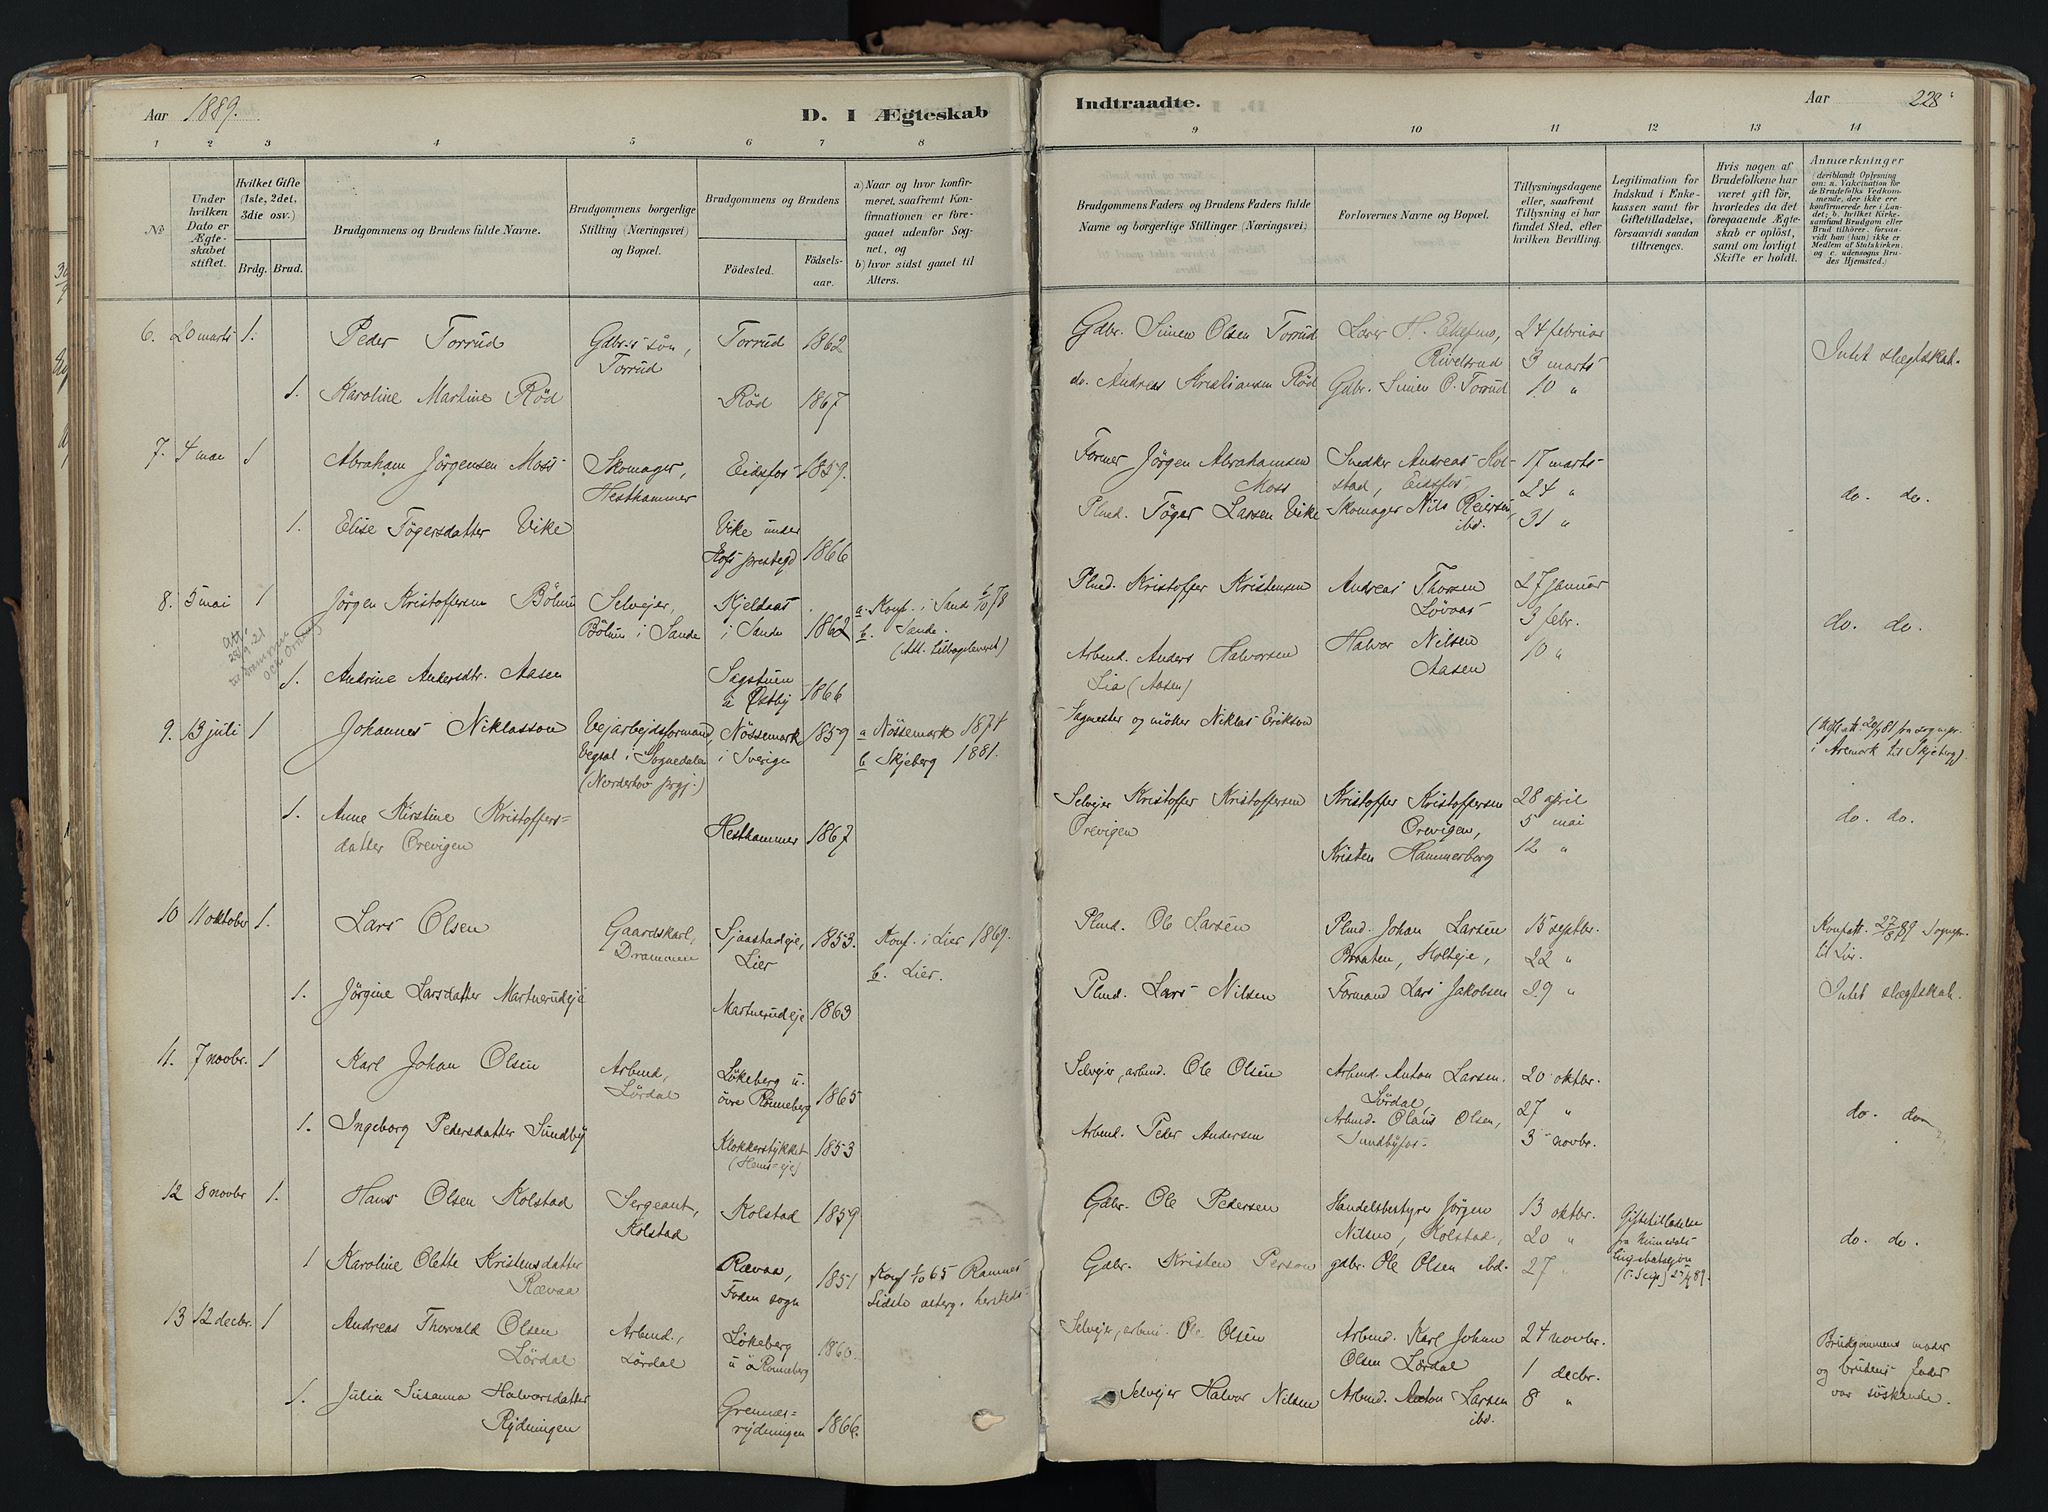 Aar 1889.
D. I Ægteskab
Indtraadte.
Aar 228
1 2 3 4 5 6 7 8 9 10 11 12 13 14
No.
Under hvilken Dato er Ægteskabet stiftet.
Hvilket Gifte (1ste, 2det, 3die osv.)
Brdg. Brud.
Brudgommens og Brudens fulde Navne.
Brudgommens borgerlige Stilling (Næringsvei) og Bopæl.
Brudgommens og Brudens
Fødested.
Fødselsaar.
a) Naar og hvor konfirmeret, saafremt Konfirmationen er foregaaet udenfor Sognet, og
b) hvor sidst gaaet til Alters.
Brudgommens Faders og Brudens Faders fulde Navne og borgerlige Stillinger (Næringsvei)
Forlovernes Navne og Bopæl.
Tillysningsdagene eller, saafremt Tillysning ei har fundet Sted, efter hvilken Bevilling.
Legitimation for Indskud i Enkekassen samt for Giftetilladelse, forsaavidt saadan tiltrænges.
Hvis nogen af Brudefolkene har været gift før, hvorledes da det foregaaende Ægteskab er opløst, samt om lovligt Skifte er holdt.
Anmærkninger
(deriblandt Oplysning om: a. Vakcination for de Brudefolks Vedkommende, der ikke ere konfirmerede her i Landet; b. hvilket Kirkesamfund Brudgom eller Brud tilhører, forsaavidt han (hun) ikke er Medlem af Statskirken, og c. udensogns Brudes Hjemsted.)
6. 20 marts 1. Peder Torrud Gdbr.s søn, Torrud Torrud 1862
Gdbr. Simen Olsen Torrud
Rivelsrud
24 februar
3 marts
10 "
Intet slegtskab.
1. Karoline Martine Röd Röd 1867
do. Andreas Kristiansen Röd Gdbr. Simen O. Torrud
7. 4 mai 1 Abraham Jörgensen Moss Skomager, Hesthammer Eidsfos 1859.
Former Jörgen Abrahamsen Moss
Snedker Andreas Holstad, Eidsfos
17 marts
24 "
31 "
do. do.
1. Elise Tögersdatter Vike Vike under Hofs prestegd 1866
Plmd. Töger Larsen Vike Skomager Nils Reiersen, ibd.
8. 5 mai 1 Jörgen Kristoffersen Bölum Selvejer, Bölum i Sande Kjeldaas i Sande 1862
a. Konf. i Sand 6/10 78
b. Sande.
(Att. tilbageleveret)
Plmd. Kristoffer Kristensen
Andreas Thorsen Lövaas
27 januar
3 febr.
10 "
do. do.
Att. 28/9.21 til Drammen
1. Andrine Andersdtr. Aasen Sagstuen u Østby 1866
Arbmd. Anders Halvorsen Lia (Aasen)
Halvor Nilsen Aasen
9. 13 juli 1 Johannes Niklasson Vejarbejdsformand, Vegsal i Sognedalen (Norderhov prgj.) Nössemark i Sverige 1859
a Nössemark 1874
b Skjeberg 1881.
Sagmester og möller Niklas Erikson
i Aremark til Skjeberg).
1. Anne Kirstine Kristoffersdatter Orevigen Hesthammer 1867
Selvejer Kristoffer Kristoffersen Orevigen
Kristoffer Kristoffersen Orevigen,
Kristen Hammerborg
28 april
5 mai
12 "
do. do.
10 11 oktober 1. Lars Olsen Gaardskarl, Drammen Sjaastadeje, Lier 1853.
Konf. i Lier 1869.
b. Lier.
Plmd. Ole Larsen
Plmd. Johan Larsen Braaten, Holteje,
15 septbr.
22 "
29 "
Konfatt. 27/8 89 Sognepr. til Lier.
1. Jörgine Larsdatter Martnerudeje Martnerudeje 1863
Plmd. Lars Nilsen Formand Lars Jakobsen
Intet slegtskab.
11. 7 novbr. 1 Karl Johan Olsen Arbmd, Lördal Lökeberg u. övre Ronneberg 1865
Selvejer, arbmd. Ole Olsen
Arbmd. Anton Larsen. Lördal,
20 oktbr.
27 "
3 novbr.
do. do.
1. Ingeborg Pedersdatter Sundby Klokkerstykket (Hems-eje) 1853
Arbmd. Peder Andersen
Arbmd. Olaus Olsen, Sundbyfos
12 8 novbr 1. Hans Olsen Kolstad Sergeant, Kolstad Kolstad 1859
Gdbr. Ole Pedersen
Handelsbestyrer Jörgen Nilsen, Kolstad,
13 oktbr.
20 "
27 "
Giftetilladelse
do. do.
1 Karoline Olette Kristensdatter Rævaa Rævaa, Foden sogn 1851
Konf 1/10 65 Ramnes
Sidste alterg. hersteds
Gdbr. Kristen Person gdbr. Ole Olsen ibd.
13 12 decbr. 1 Andreas Thorvald Olsen Lördal Arbmd., Lördal Lökeberg u ö Ronneberg 1860
Selvejer, arbmd. Ole Olsen
Arbmd. Karl Johan Olsen Lördal
24 novbr.
1 decbr.
8 "
Brudgommens moder og brudens fader var söskende.
1. Julia Susanna Halvorsdatter Rydningen Grennesrydningen 1866.
Selvejer Halvor Nilsen Arbmd. Anton Larsen ibd.